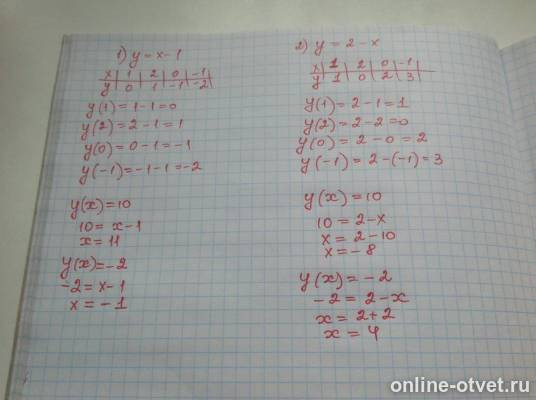 1) y = x - 1
x | 1 | 2 | 0 | -1
y | 0 | 1 | -1 | -2
y(1) = 1 - 1 = 0
y(2) = 2 - 1 = 1
y(0) = 0 - 1 = -1
y(-1) = -1 - 1 = -2
y(x) = 10
10 = x - 1
x = 11
y(x) = -2
-2 = x - 1
x = -1
2) y = 2 - x
x | 1 | 2 | 0 | -1
y | 1 | 0 | 2 | 3
y(1) = 2 - 1 = 1
y(2) = 2 - 2 = 0
y(0) = 2 - 0 = 2
y(-1) = 2 - (-1) = 3
y(x) = 10
10 = 2 - x
x = 2 - 10
x = -8
y(x) = -2
-2 = 2 - x
x = 2 + 2
x = 4
online-otvet.ru